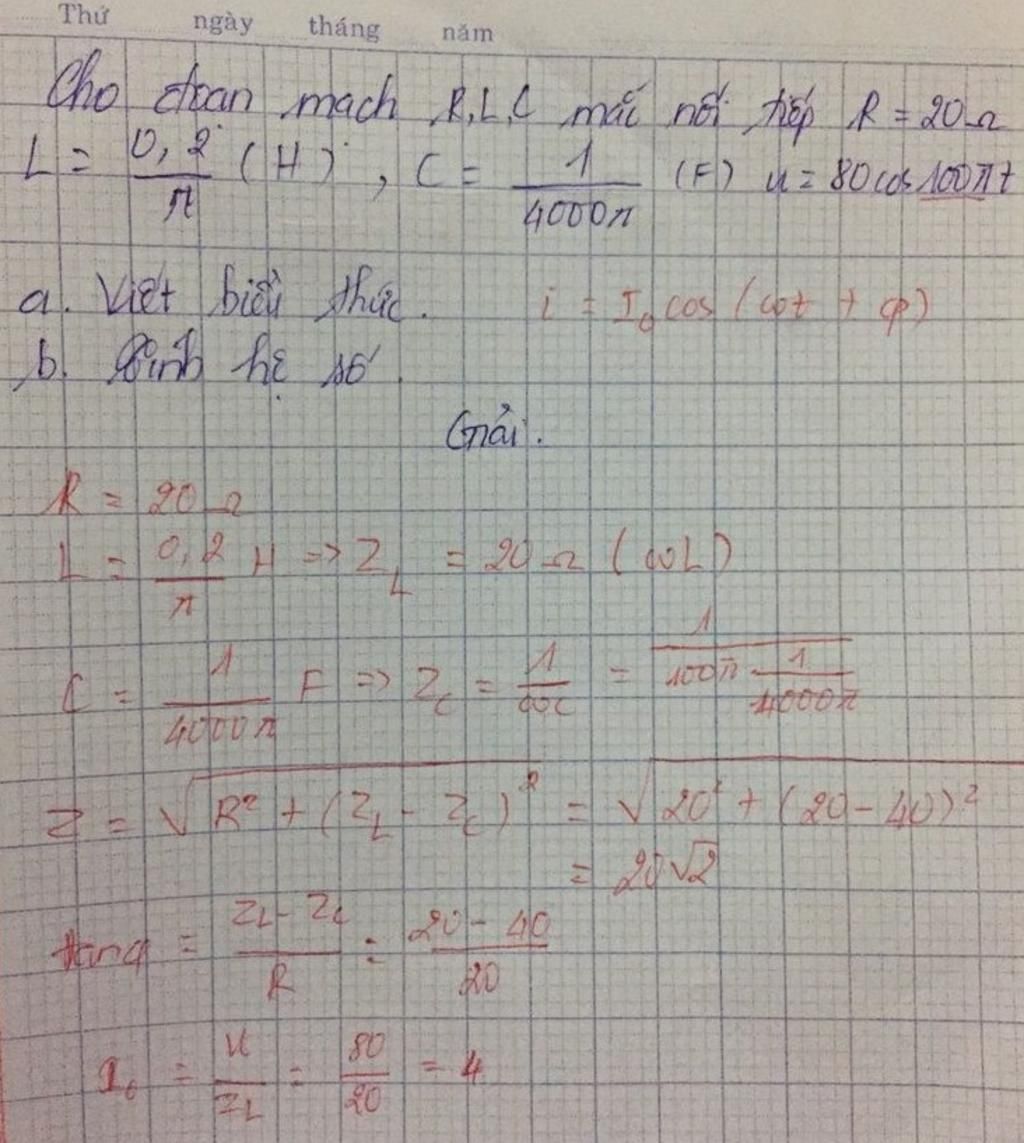 Thứ ngày tháng năm
Cho đoạn mạch R, L, C mắc nối tiếp R = 20Ω
L = 0,2/π (H), C = 1/4000π (F) u = 80cos100πt
a. Viết biểu thức. i = I₀cos(ωt + φ)
b. Tính hệ số.
Giải.
R = 20Ω
L = 0,2/π H => Z_L = 20Ω (ωL)
C = 1/4000π F => Z_C = 1/ωC = 1/(100π 1/4000π)
Z = √(R² + (Z_L - Z_C)²) = √(20² + (20 - 40)²
= 20√2
tanφ = (Z_L - Z_C)/R = (20 - 40)/20
I₀ = U/Z_L = 80/20 = 4